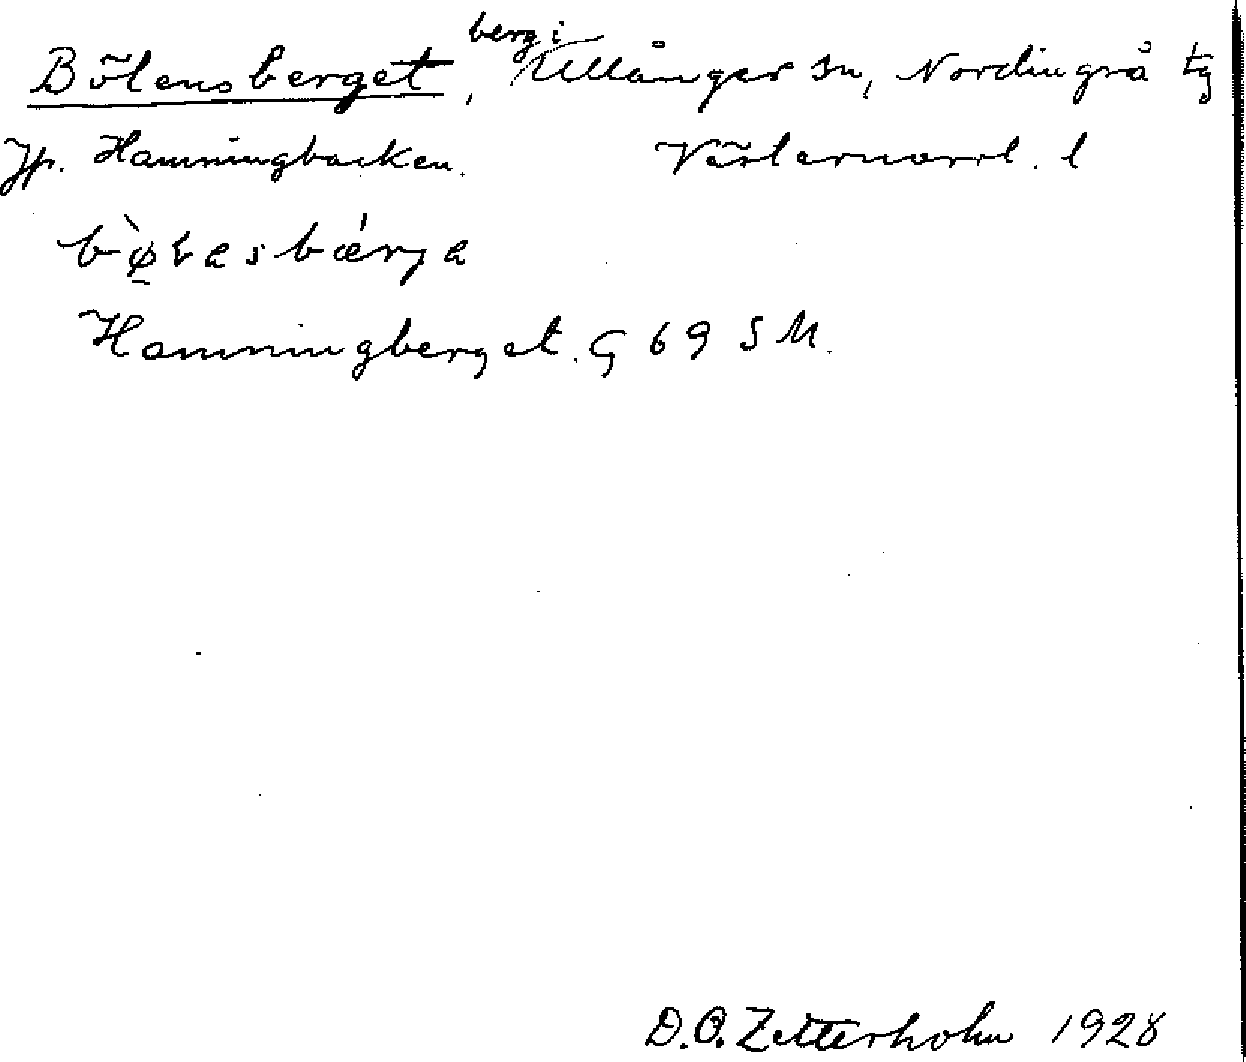 Bölensberget, berg i Ullånger sn, Nordingrå tg
Jfr. Hamningbacken. Västernorrl. l
bø̀lasbǽrja
Hamningberget. G 69 SM.
D.O. Zetterholm 1928